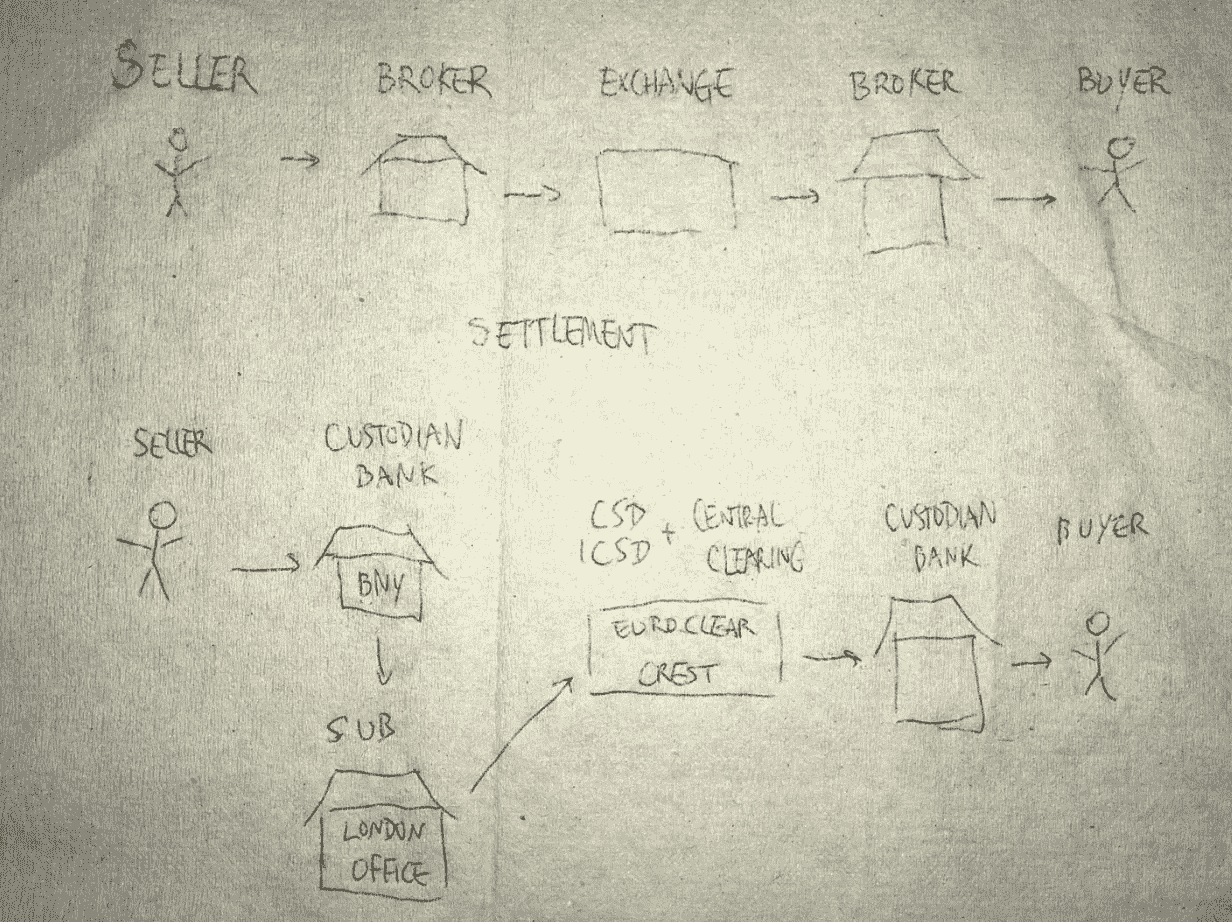 SELLER BROKER EXCHANGE BROKER BUYER
SETTLEMENT
SELLER
CUSTODIAN
BANK
BNY
SUB
LONDON
OFFICE
CSD + CENTRAL
ICSD CLEARING
EUROCLEAR
CREST
CUSTODIAN
BANK
BUYER